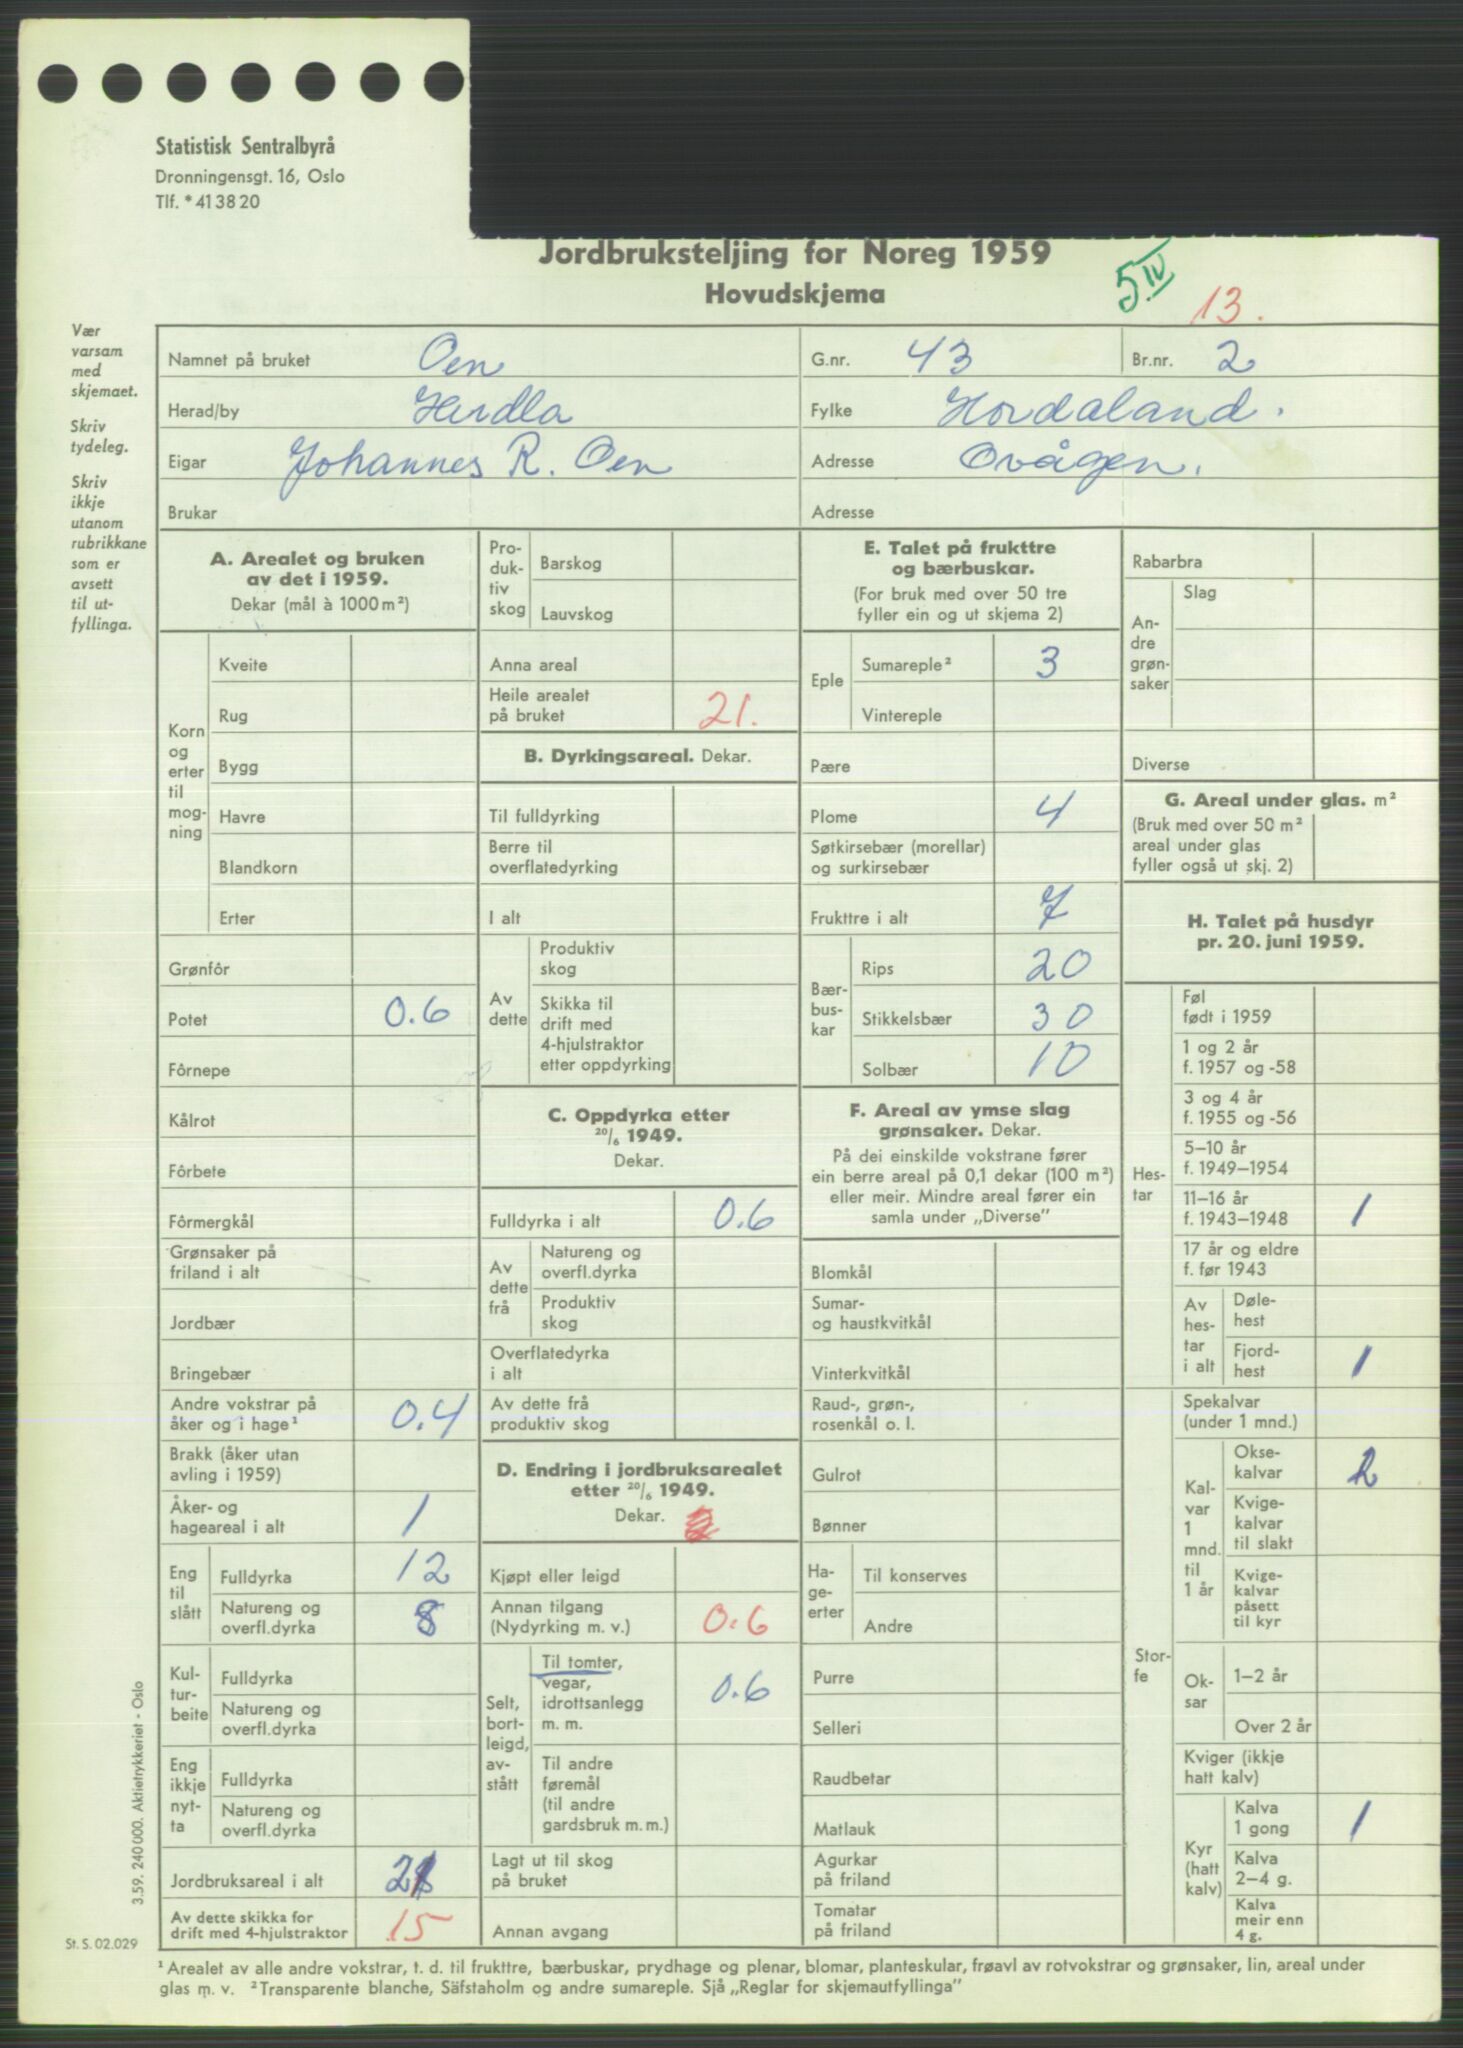 Statistisk Sentralbyrå
Dronningensgt. 16, Oslo
Tlf. * 41 38 20
Jordbruksteljing for Noreg 1959
Hovudskjema
5 IV
13.
Vær
varsam
med
skjemaet.
Skriv
tydeleg.
Skriv
ikkje
utanom
rubrikkane
som er
avsett
til ut-
fyllinga.
Namnet på bruket Oen G.nr. 43 Br.nr. 2
Herad/by Herdla Fylke Hordaland.
Eigar Johannes R. Oen Adresse Ovågen.
Brukar Adresse
A. Arealet og bruken
av det i 1959.
Dekar (mål à 1000 m²)
Korn
og
erter
til
mog-
ning
Kveite
Rug
Bygg
Havre
Blandkorn
Erter
Grønfôr
Potet 0.6
Fôrnepe
Kålrot
Fôrbete
Fôrmergkål
Grønsaker på
friland i alt
Jordbær
Bringebær
Andre vokstrar på
åker og i hage¹ 0.4
Brakk (åker utan
avling i 1959)
Åker- og
hageareal i alt 1
Eng
til
slått
Fulldyrka 12
Natureng og
overfl.dyrka 8
Kul-
tur-
beite
Fulldyrka
Natureng og
overfl.dyrka
Eng
ikkje
nyt-
ta
Fulldyrka
Natureng og
overfl.dyrka
Jordbruksareal i alt 21
Av dette skikka for
drift med 4-hjulstraktor 15
Pro-
duk-
tiv
skog
Barskog
Lauvskog
Anna areal
Heile arealet
på bruket 21.
B. Dyrkingsareal. Dekar.
Til fulldyrking
Berre til
overflatedyrking
I alt
Av
dette
Produktiv
skog
Skikka til
drift med
4-hjulstraktor
etter oppdyrking
C. Oppdyrka etter
20/6 1949.
Dekar.
Fulldyrka i alt 0.6
Av
dette
frå
Natureng og
overfl.dyrka
Produktiv
skog
Overflatedyrka
i alt
Av dette frå
produktiv skog
D. Endring i jordbruksarealet
etter 20/6 1949.
Dekar.
Kjøpt eller leigd
Annan tilgang
(Nydyrking m. v.) 0.6
Selt,
bort-
leigd,
av-
stått
Til tomter,
vegar,
idrottsanlegg
m. m. 0.6
Til andre
føremål
(til andre
gardsbruk m. m.)
Lagt ut til skog
på bruket
Annan avgang
E. Talet på frukttre
og bærbuskar.
(For bruk med over 50 tre
fyller ein og ut skjema 2)
Eple
Sumareple² 3
Vintereple
Pære
Plome 4
Søtkirsebær (morellar)
og surkirsebær
Frukttre i alt 7
Bær-
bus-
kar
Rips 20
Stikkelsbær 30
Solbær 10
F. Areal av ymse slag
grønsaker. Dekar.
På dei einskilde vokstrane fører
ein berre areal på 0,1 dekar (100 m²)
eller meir. Mindre areal fører ein
samla under „Diverse”
Blomkål
Sumar-
og haustkvitkål
Vinterkvitkål
Raud-, grøn-,
rosenkål o. l.
Gulrot
Bønner
Ha-
ge-
erter
Til konserves
Andre
Purre
Selleri
Raudbetar
Matlauk
Agurkar
på friland
Tomatar
på friland
Rabarbra
An-
dre
grøn-
saker
Slag
Diverse
G. Areal under glas. m²
(Bruk med over 50 m²
areal under glas
fyller også ut skj. 2)
H. Talet på husdyr
pr. 20. juni 1959.
Hes-
tar
Føl
født i 1959
1 og 2 år
f. 1957 og -58
3 og 4 år
f. 1955 og -56
5–10 år
f. 1949–1954
11–16 år
f. 1943–1948 1
17 år og eldre
f. før 1943
Av
hes-
tar
i alt
Døle-
hest
Fjord-
hest 1
Stor-
fe
Spekalvar
(under 1 mnd.)
Kal-
var
1
mnd.
til
1 år
Okse-
kalvar 2
Kvige-
kalvar
til slakt
Kvige-
kalvar
påsett
til kyr
Ok-
sar
1–2 år
Over 2 år
Kviger (ikkje
hatt kalv)
Kyr
(hatt
kalv)
Kalva
1 gong 1
Kalva
2–4 g.
Kalva
meir enn
4 g.
3.59. 240 000. Aktietrykkeriet - Oslo
St. S. 02.029
¹ Arealet av alle andre vokstrar, t. d. til frukttre, bærbuskar, prydhage og plenar, blomar, planteskular, frøavl av rotvokstrar og grønsaker, lin, areal under
glas m. v. ² Transparente blanche, Säfstaholm og andre sumareple. Sjå „Reglar for skjemautfyllinga”